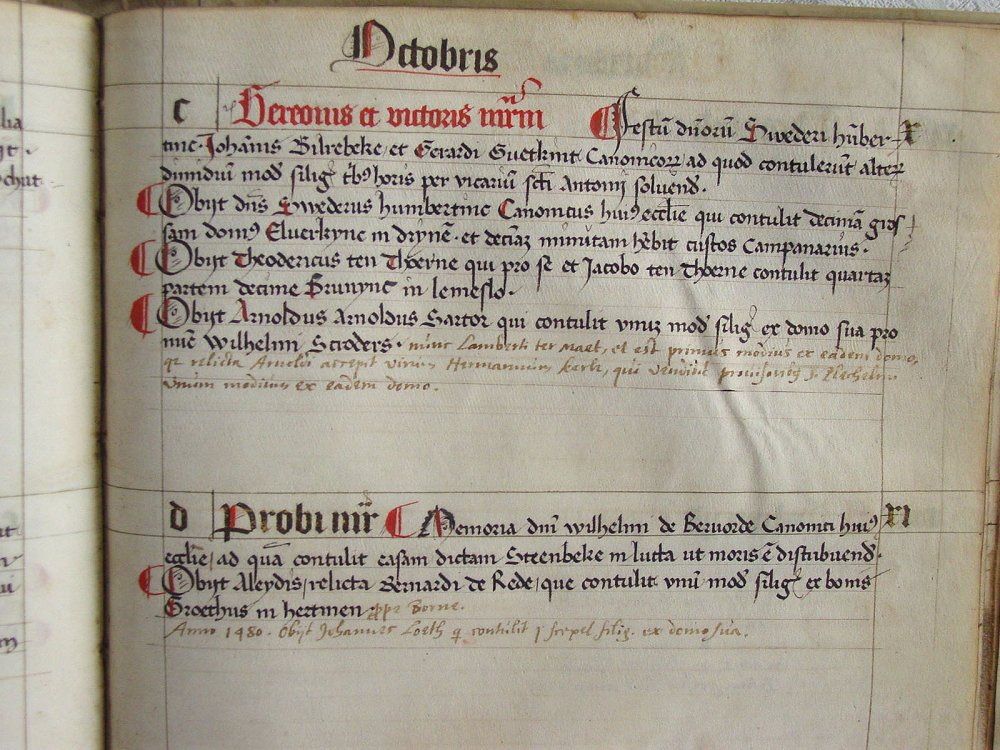 Octobris
c Gereonis et victoris mr̄m Festū dn̄orū Swederi hūber- X
tinc Johānis Bilrebeke et Gerardi Suetkint Canonicorꝝ ad quod contulerūt alterꝝ
dimidiū mod̄ siliḡ tb9 horis per vicariū scti Antonij soluend̄.
Obijt dn̄s Swederus humbertinc Canonicus hui9 ecclīe qui contulit decimā gros
sam dom9 Eluerkync in drynē et deciāz minutam hēbit custos Campanarius.
Obijt Theodericus ten Thoerne qui pro se et Jacobo ten Thoerne contulit quartaz
partem decime Brunync in lemeslo.
Obijt Arnoldus Arnoldus Sartor qui contulit vnuz mod̄ siliḡ ex domo sua pro
nūc wilhelmi Scroders. nunc Lamberti ter maet, et est primus modius ex eadem domo,
qz relicta Arnoldi accepit virum Hermannum kerk, qui vendidit prouisoribus S. Plechelmi
vnum modium ex eadem domo.
d Probi mr̄ Memoria dn̄i wilhelmi de Beruorde Canonici hui9 XI
ecclīe, ad quā contulit casam dictam Steenbeke in lutta ut moris ē distribuend̄.
Obijt Aleydis, relicta Bernardi de Rede, que contulit vnū mod̄ siliḡ ex bonis
Groethus in hertmen prope Borne.
Anno 1480. Obijt Johannes Loeth q contulit j scepel silig. ex domo sua.